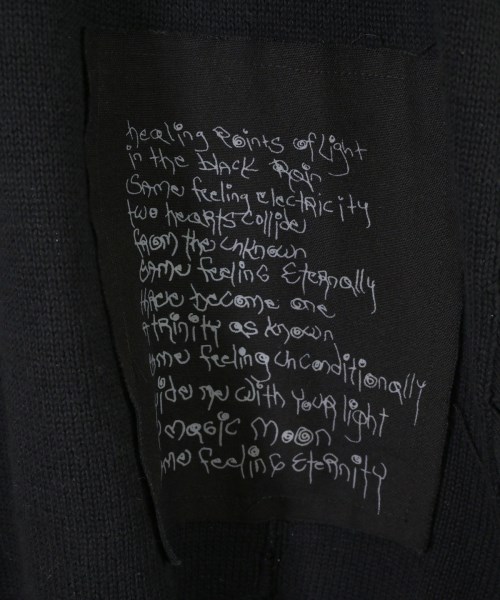 healing Points of Light
in the black Rain
same feeling electricity
two hearts collide
from the unknown
same feeling Eternally
three become one
a trinity as known
same feeling unconditionally
me with your light
magic moon
feeling Eternity